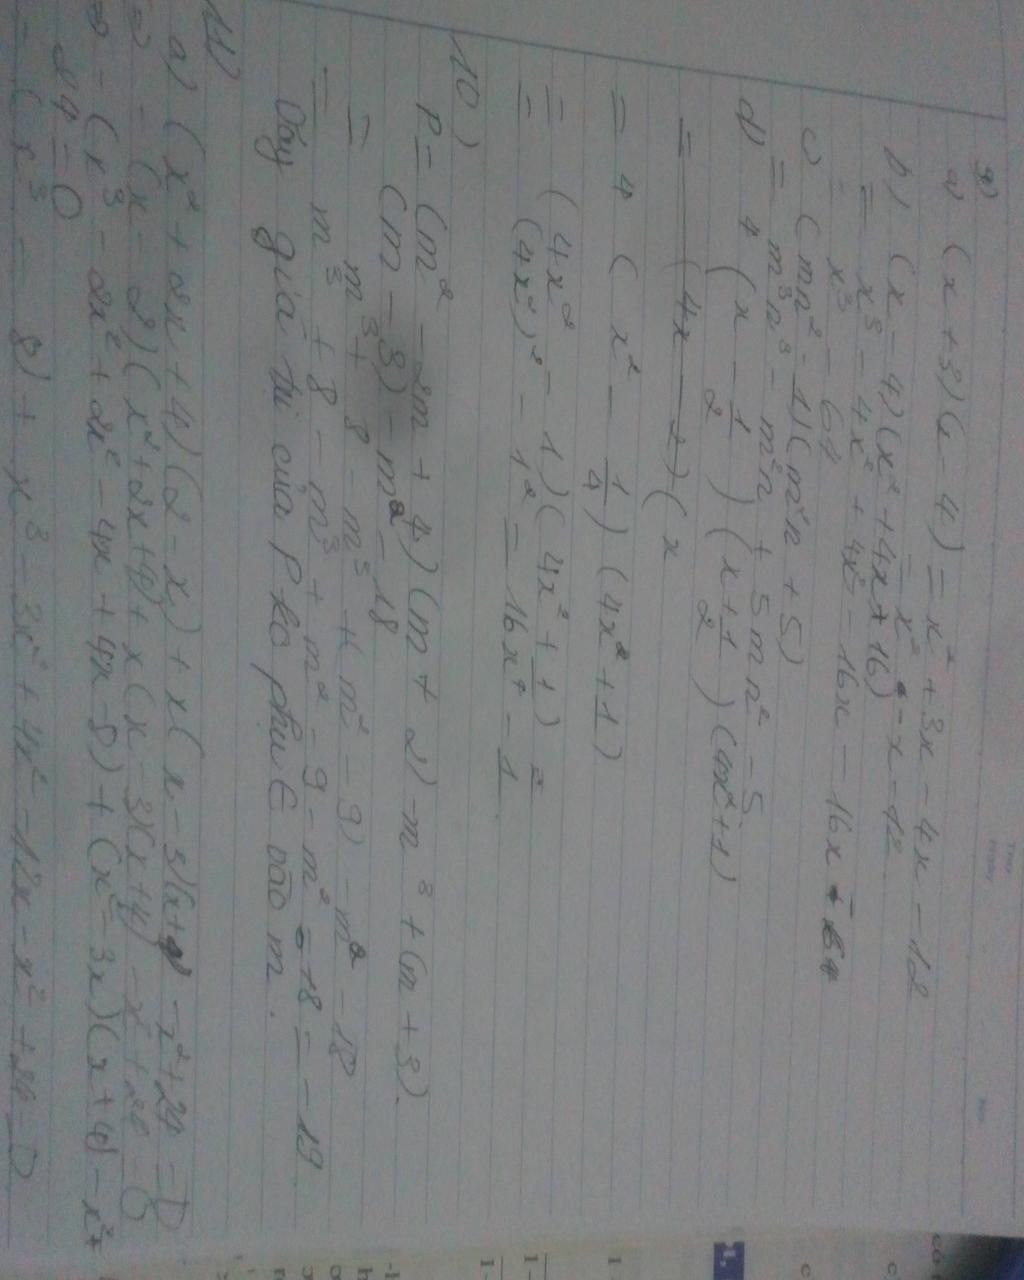 9)
a) (x + 3)(x - 4) = x² + 3x - 4x - 12
= x² - x - 12
b) (x - 4)(x² + 4x + 16)
= x³ - 4x² + 4x² - 16x - 16x - 64
= x³ - 64
c) (mn² - 1)(m²n + 5)
= m³n³ - m²n + 5mn² - 5
d) 4 (x - 1/2) (x + 1/2) (4x² + 1)
= (4x - 2) (x
= 4 (x² - 1/4) (4x² + 1)
= (4x² - 1)(4x² + 1) =
= (4x²)² - 1² = 16x⁴ - 1
10)
P = (m² - 2m + 4)(m + 2) - m³ + (m + 3).
(m - 3) - m² - 18
= m³ + 8 - m³ + (m² - 9) - m² - 18
= m³ + 8 - m³ + m² - 9 - m² - 18 = - 19
Vậy giá trị của P ko phụ ∈ vào m.
11)
a) (x² + 2x + 4)(2 - x) + x(x - 3)(x + 4) - x² + 24 = 0
- (x - 2)(x² + 2x + 4) + x(x - 3)(x + 4) - x² + 24 = 0
- (x³ - 2x² + 2x² - 4x + 4x - 8) + (x² - 3x)(x + 4) - x² +
24 = 0
- (x³ - 8) + x³ - 3x² + 4x² - 12x - x² + 24 = 0